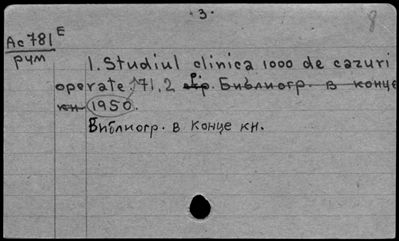 · 3 · 8
Ac 781 E
рум
1. Studiul clinica 1000 de cazuri
operate. 71, 2 Библиогр. в конце
кн. 1950.
Библиогр. в конце кн.